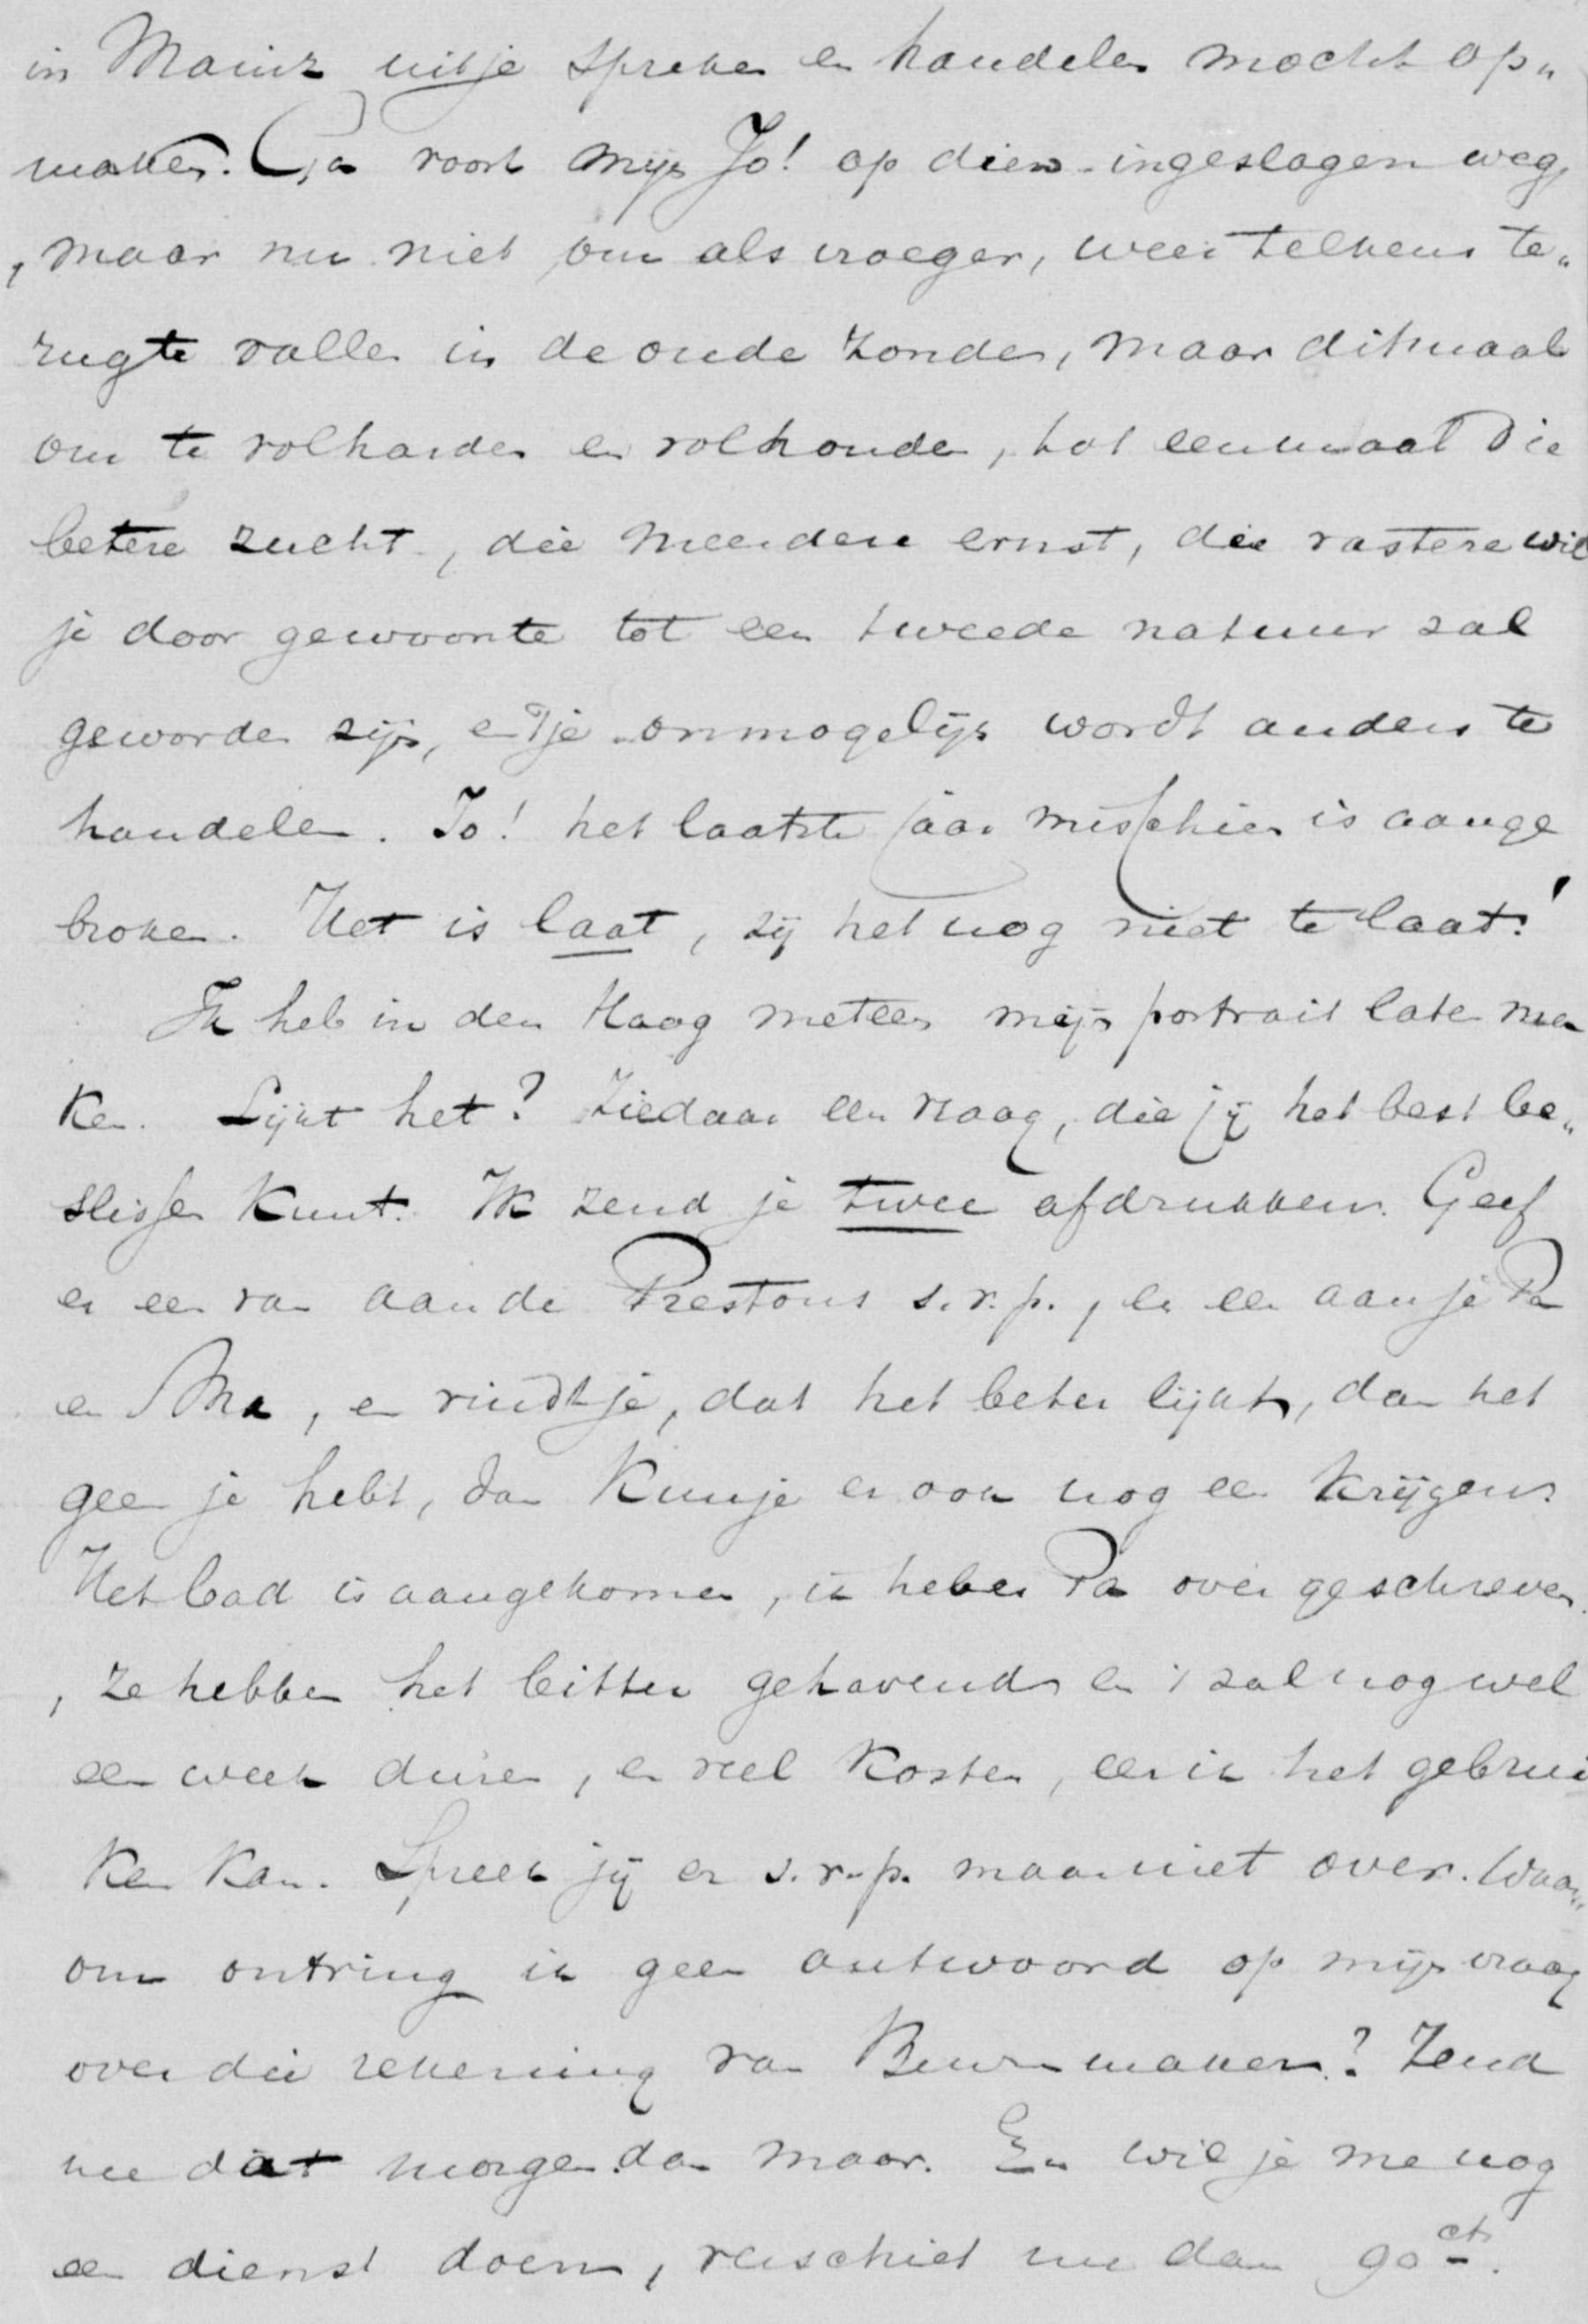 in Mainz uit je spreken en handelen mocht op„
maken. Ga voort mijn Jo! op dien ingeslagen weg,
, maar nu niet om als vroeger, weer telkens te„
rug te vallen in de oude zonden, maar ditmaal
om te volharden en vol houden, tot eenmaal die
betere zucht, die meerdere ernst, die vastere wil
je door gewoonte tot een tweede natuur zal
geworden zijn, en 't je onmogelijk wordt anders te
handelen. Jo! het laatste jaar misschien is aange
broken. Het is laat, zij het nog niet te laat!
Ik heb in den Haag meteen mijn portrait laten ma
ken. Lijkt het? Ziedaar een vraag, die jij het best be„
slissen kunt. Ik zend je twee afdrukken. Geef
er een van aan de Prestons s.v.p., en een aan je Pa
en Ma, en vindt je, dat het beter lijkt, dan het
geen je hebt, dan kun je er ook nog een krijgen.
Het bad is aangekomen, ik heb er Pa over geschreven.
, ze hebben het bitter gehavend en 't zal nog wel
een week duren, en veel kosten, eer ik het gebrui
ken kan. Spreek jij er s.v.p. maar niet over. Waar„
om ontving ik geen antwoord op mijn vraag
over die rekening van ? Zend
me dat morgen dan maar. En wil je me nog
een dienst doen, verschiet me dan 90 ct.